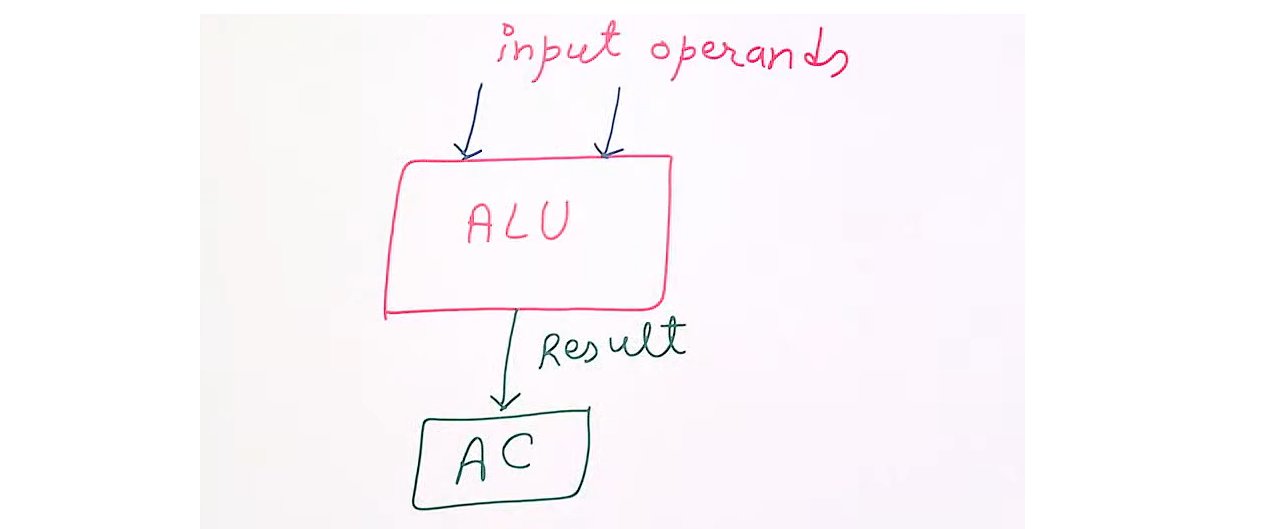 input operands
ALU
Result
AC